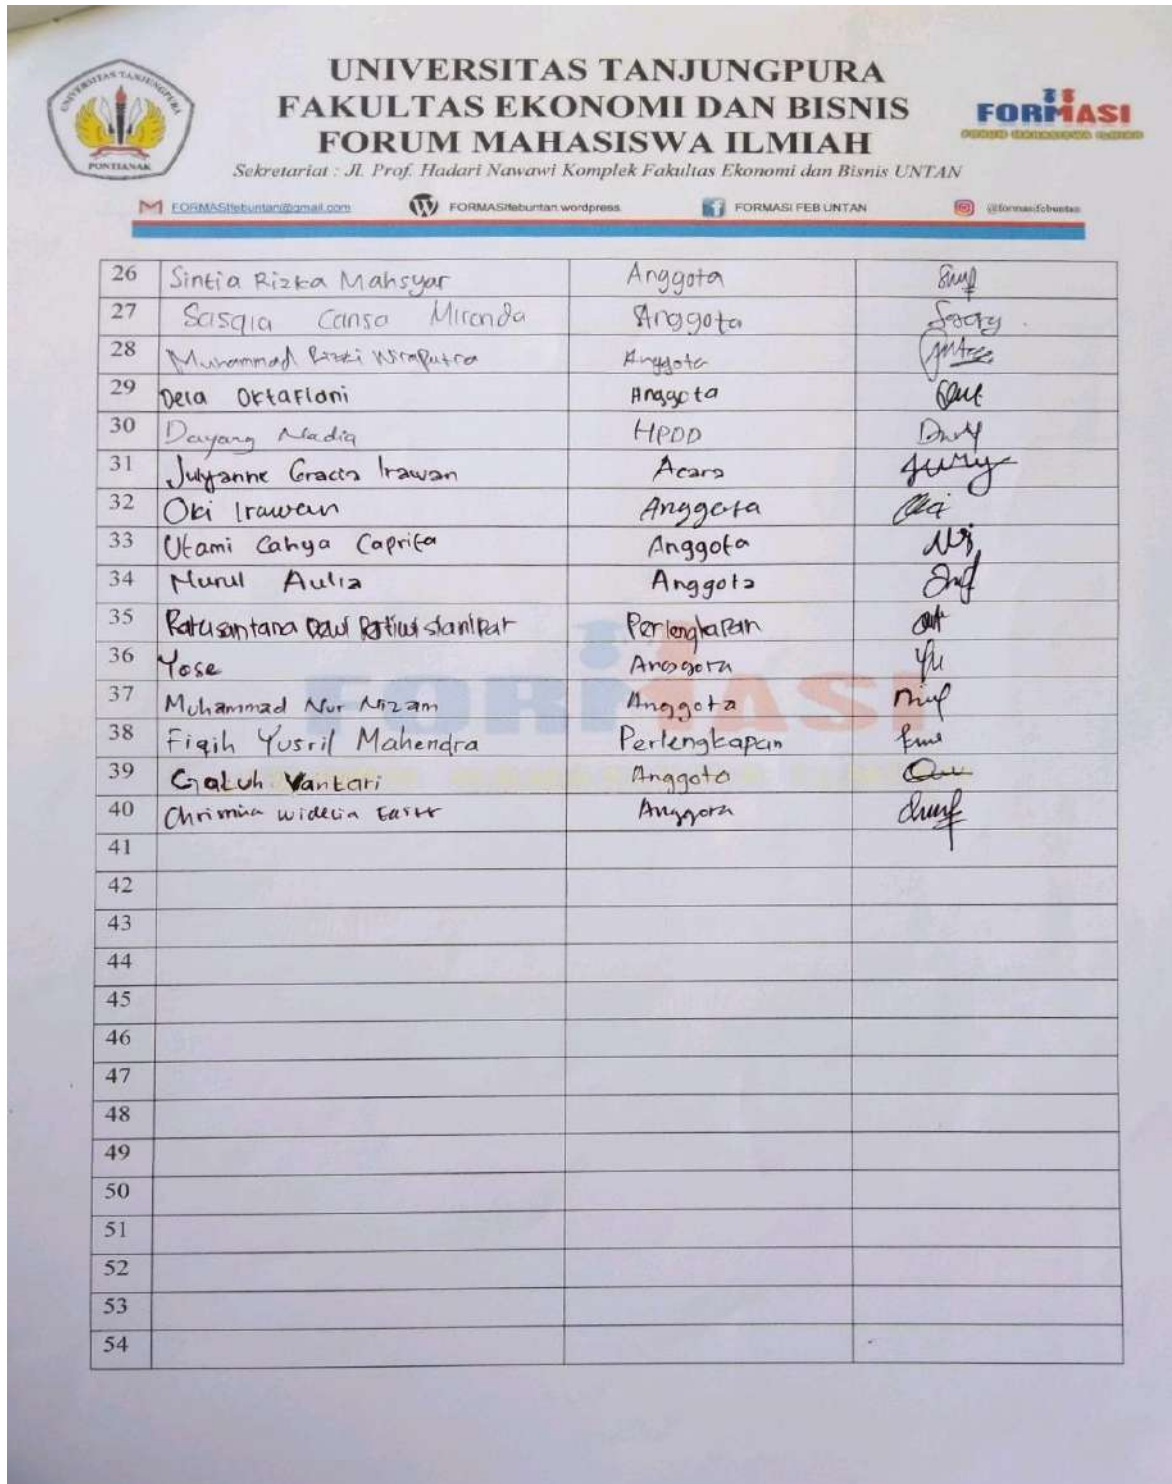 UNIVERSITAS TANJUNGPURA
PONTIANAK
UNIVERSITAS TANJUNGPURA
FAKULTAS EKONOMI DAN BISNIS
FORUM MAHASISWA ILMIAH
Sekretariat : Jl. Prof. Hadari Nawawi Komplek Fakultas Ekonomi dan Bisnis UNTAN
FORMASI
FORUM MAHASISWA ILMIAH
FORMASIfebuntan@gmail.com FORMASIfebuntan.wordpress FORMASI FEB UNTAN @formasifebuntan
26 Sintia Rizka Mahsyar Anggota
27 Sasqia Cansa Miranda Anggota
28 Muhammad Rizki Wiraputra Anggota
29 Dela Oktafiani Anggota
30 Dayang Nadia HPDD
31 Julyanne Gracia Irawan Acara
32 Oki Irawan Anggota
33 Utami Cahya Caprita Anggota
34 Nurul Aulia Anggota
35 Ratusantana Dewi Perlengkapan
36 Yose Anggota
37 Muhammad Nur Nizam Anggota
38 Fiqih Yusril Mahendra Perlengkapan
39 Galuh Vantari Anggota
40 Anggota
41
42
43
44
45
46
47
48
49
50
51
52
53
54
FORMASI